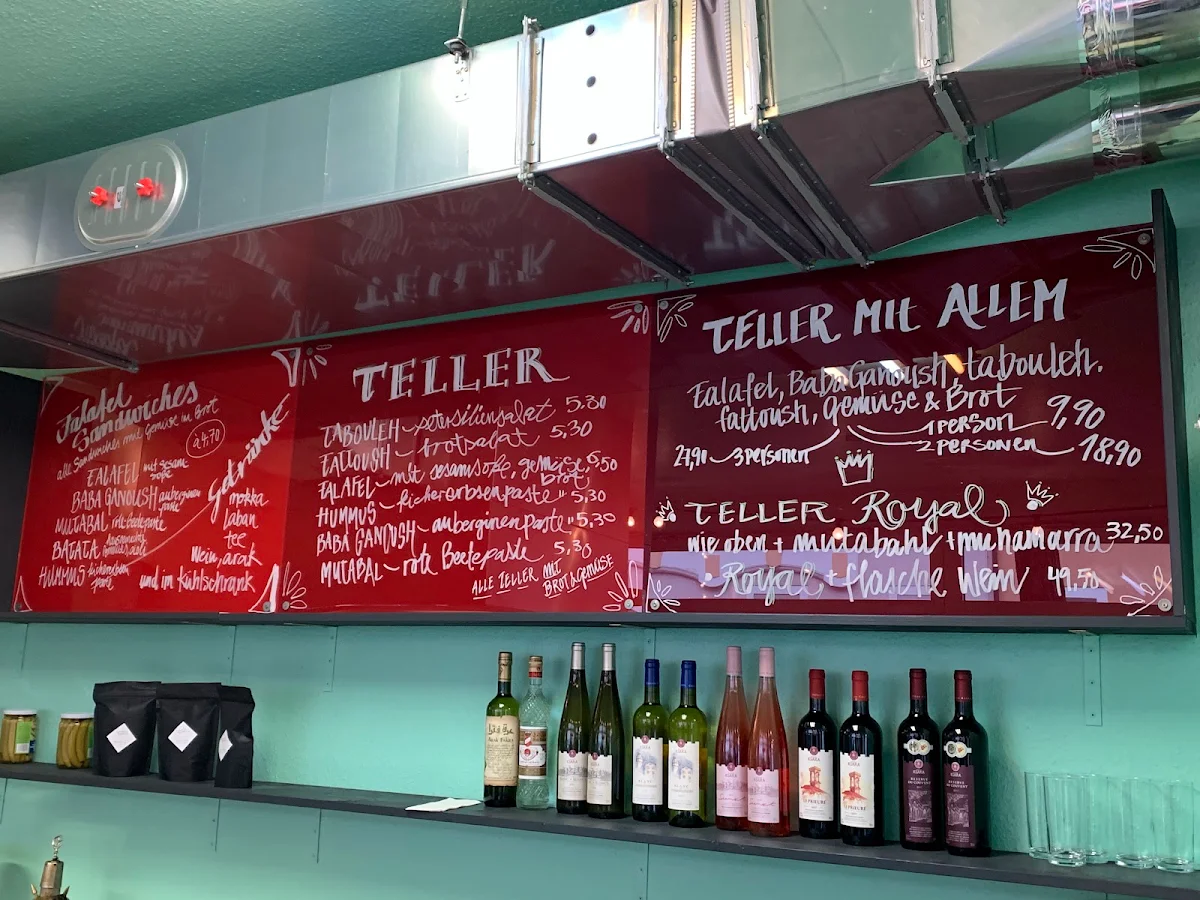 Falafel
Sandwiches
alle Sandwiches mit Gemüse im Brot
à 4,70
FALAFEL mit sesam
soße
BABA GANOUSH auberginen
paste
MUTABAL rote beete paste
BATATA
HUMMUS kichererbsen
paste
Getränke
mokka
laban
tee
Wein, arak
und im kühlschrank
TELLER
TABOULEH petersiliensalat 5,30
FATTOUSH brotsalat 5,30
FALAFEL mit sesamsoße, gemüse, 5,50
brot,
HUMMUS kichererbsenpaste " 5,30
BABA GANOUSH auberginenpaste " 5,30
MUTABAL rote Beetepaste 5,30
ALLE TELLER MIT
BROT & GEMÜSE
TELLER MIT ALLEM
Falafel, Baba Ganoush, tabouleh.
fattoush, gemüse & Brot
1 person 9,90
2 personen 18,90
27,90 3 personen
TELLER Royal
wie oben + mutabahl + muhamarra 32,50
Royal + flasche Wein 49,50
KSARA
KSARA
LE PRIEURÉ
LE PRIEURÉ
KSARA
RESERVE
DU COUVENT
KSARA
RESERVE
DU COUVENT